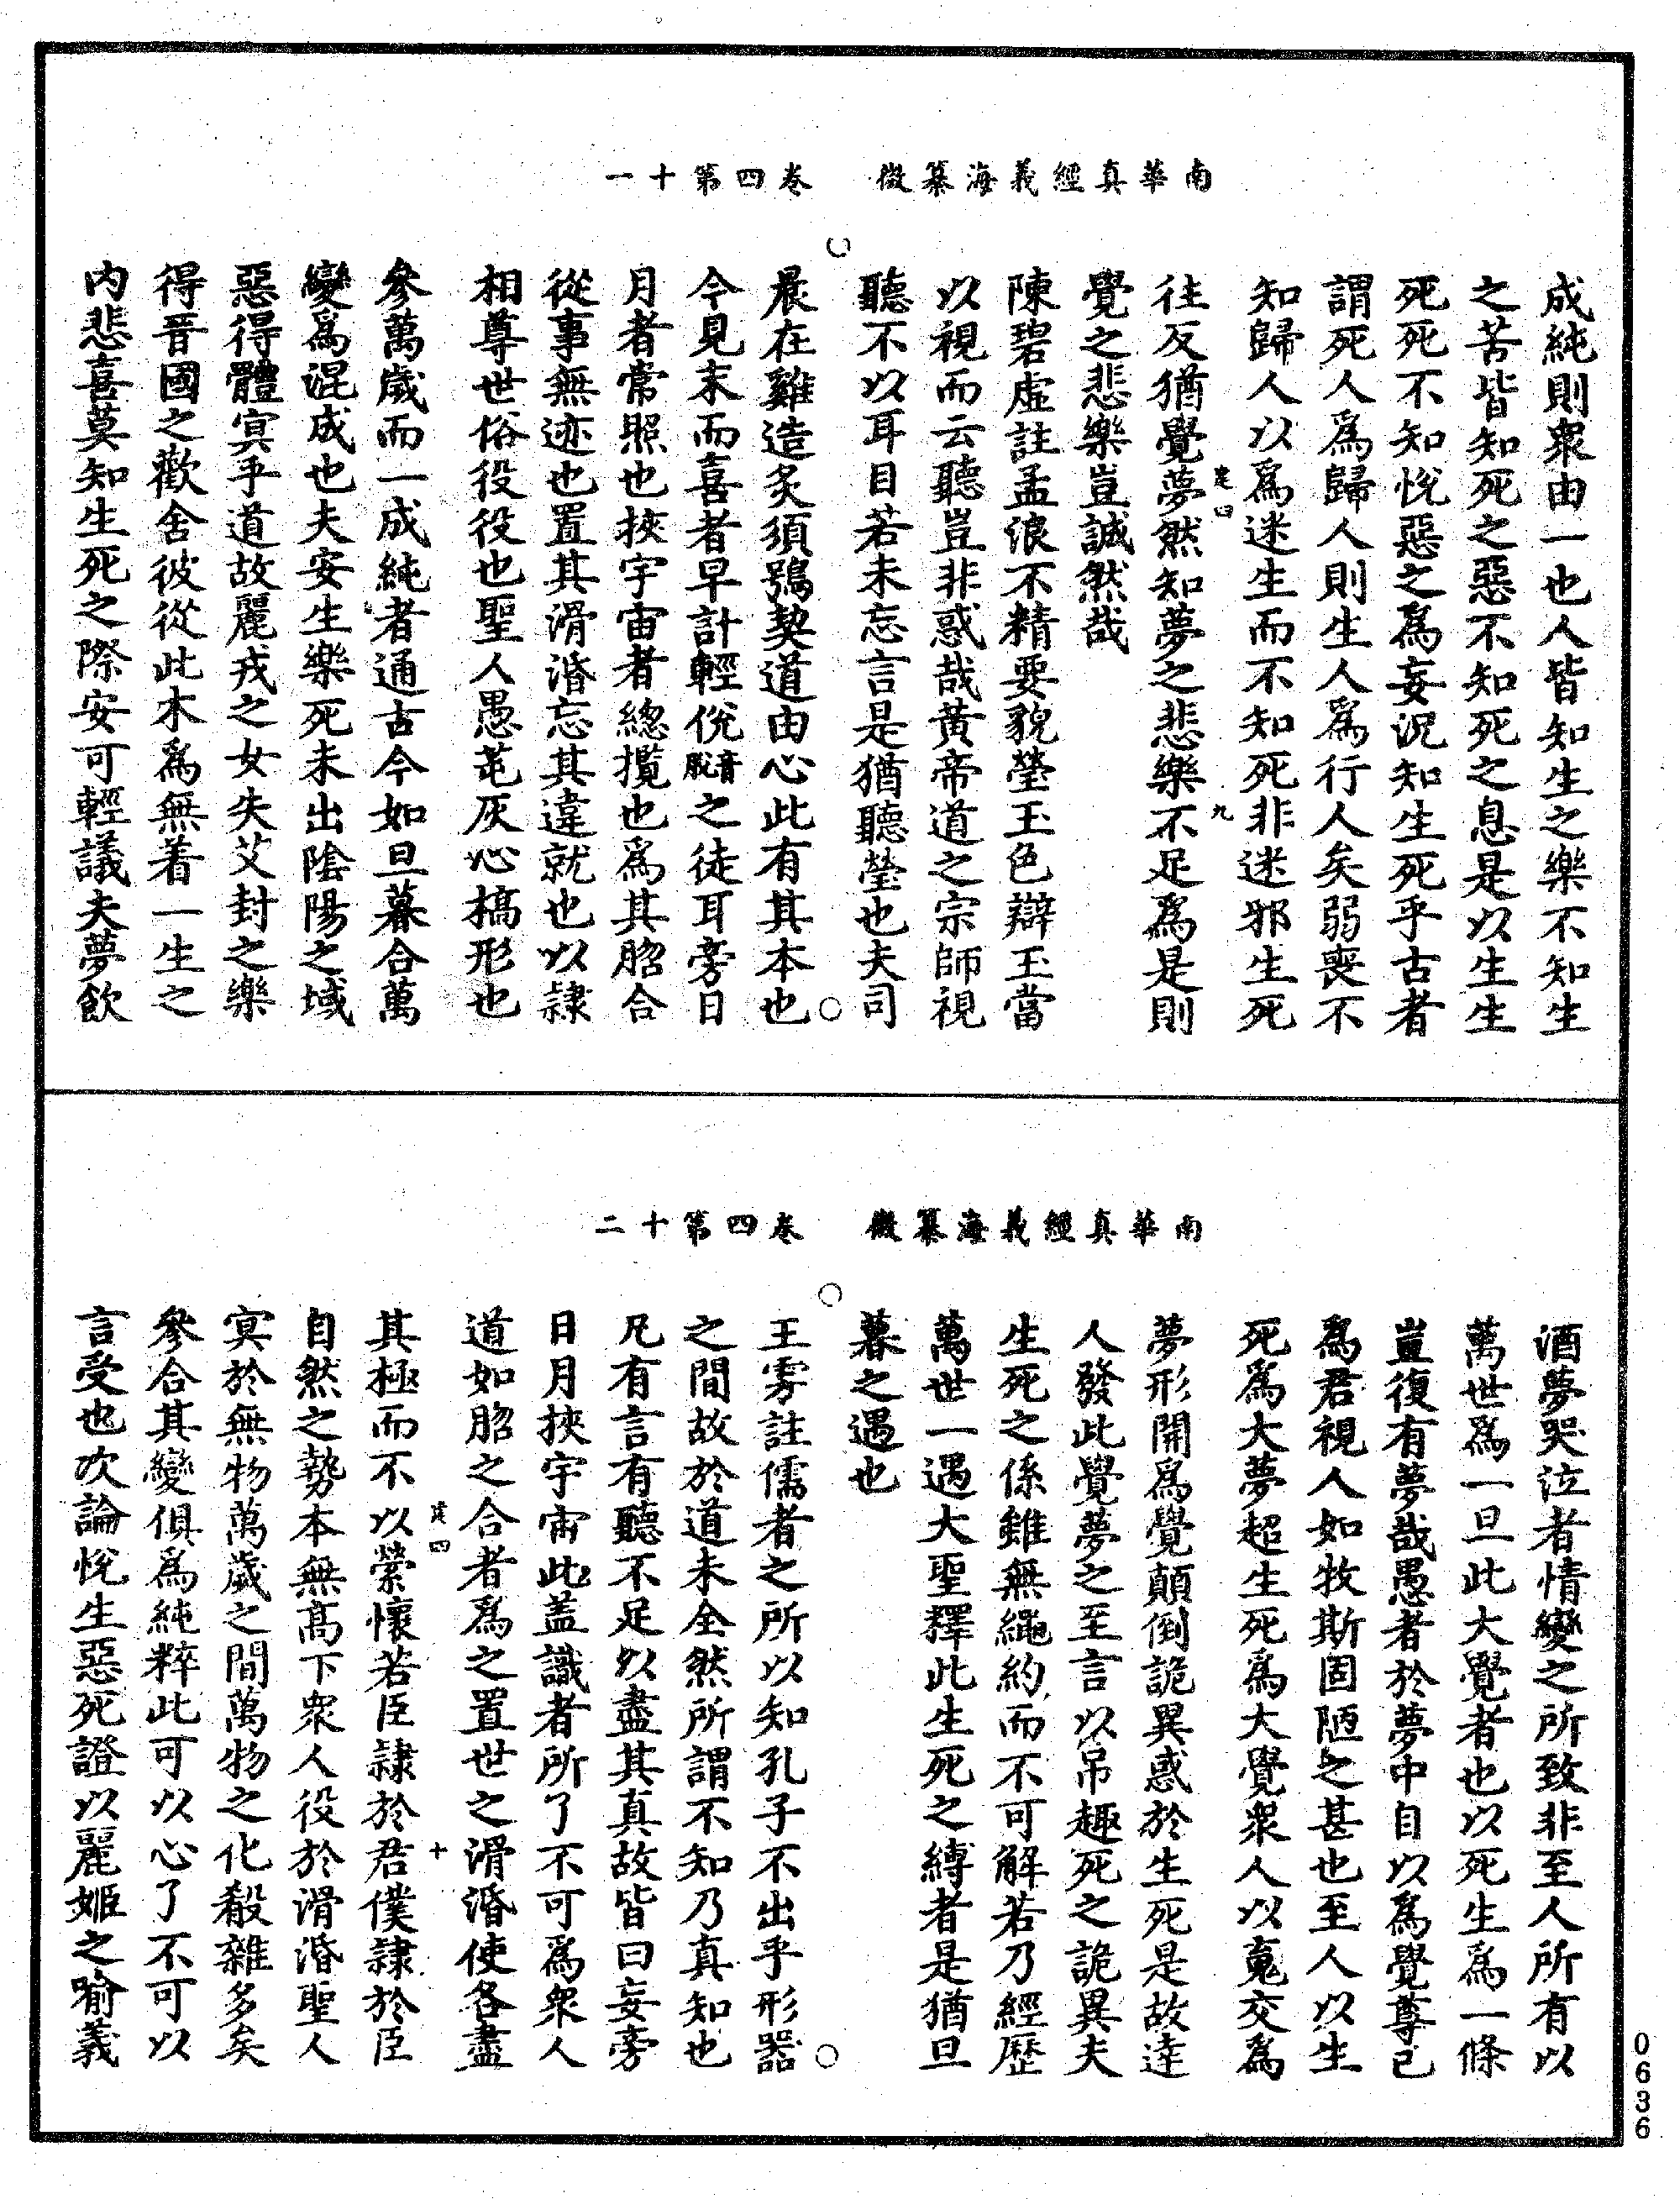 南華真經義海纂微　卷四第十一
成純則衆由一也人皆知生之樂不知生
之苦皆知死之惡不知死之息是以生生
死死不知悅惡之爲妄況知生死乎古者
謂死人爲歸人則生人爲行人矣弱喪不
知歸人以爲迷生而不知死非迷邪生死
建四　九
往反猶覺夢然知夢之悲樂不足爲是則
覺之悲樂豈誠然哉
陳碧虛註孟浪不精要貌瑩玉色辯玉當
以視而云聽豈非惑哉黃帝道之宗師視
聽不以耳目若未忘言是猶聽瑩也夫司
晨在雞造炙須鴞契道由心此有其本也
今見末而喜者早計輕侻音脫之徒耳旁日
月者常照也挾宇宙者總攬也爲其脗合
從事無迹也置其滑涽忘其違就也以隷
相尊世俗役役也聖人愚芚灰心槁形也
參萬歲而一成純者通古今如旦暮合萬
變爲混成也夫安生樂死未出陰陽之域
惡得體寅乎道故麗戎之女失艾封之樂
得晉國之歡舍彼從此木爲無着一生之
内悲喜莫知生死之際安可輕議夫夢飲
南華真經義海纂微　卷四第十二
酒夢哭泣者情變之所致非至人所有以
萬世爲一旦此大覺者也以死生爲一條
豈復有夢哉愚者於夢中自以爲覺尊己
爲君視人如牧斯固陋之甚也至人以生
死爲大夢超生死爲大覺衆人以寬交爲
夢形開爲覺顛倒詭異惑於生死是故達
人發此覺夢之至言以弔趣死之詭異夫
生死之係雖無繩約而不可解若乃經歷
萬世一遇大聖釋此生死之縛者是猶旦
暮之遇也
王雱註儒者之所以知孔子不出乎形器
之間故於道未全然所謂不知乃真知也
凡有言有聽不足以盡其真故皆曰妄旁
日月挾宇宙此蓋識者所了不可爲衆人
道如脗之合者爲之置世之滑涽使各盡
建四　十
其極而不以縈懷若臣隷於君僕隷於臣
自然之勢本無高下衆人役於滑涽聖人
寅於無物萬歲之間萬物之化殽雜多矣
參合其變俱爲純粹此可以心了不可以
言受也次論悅生惡死證以麗姬之喻義
0636